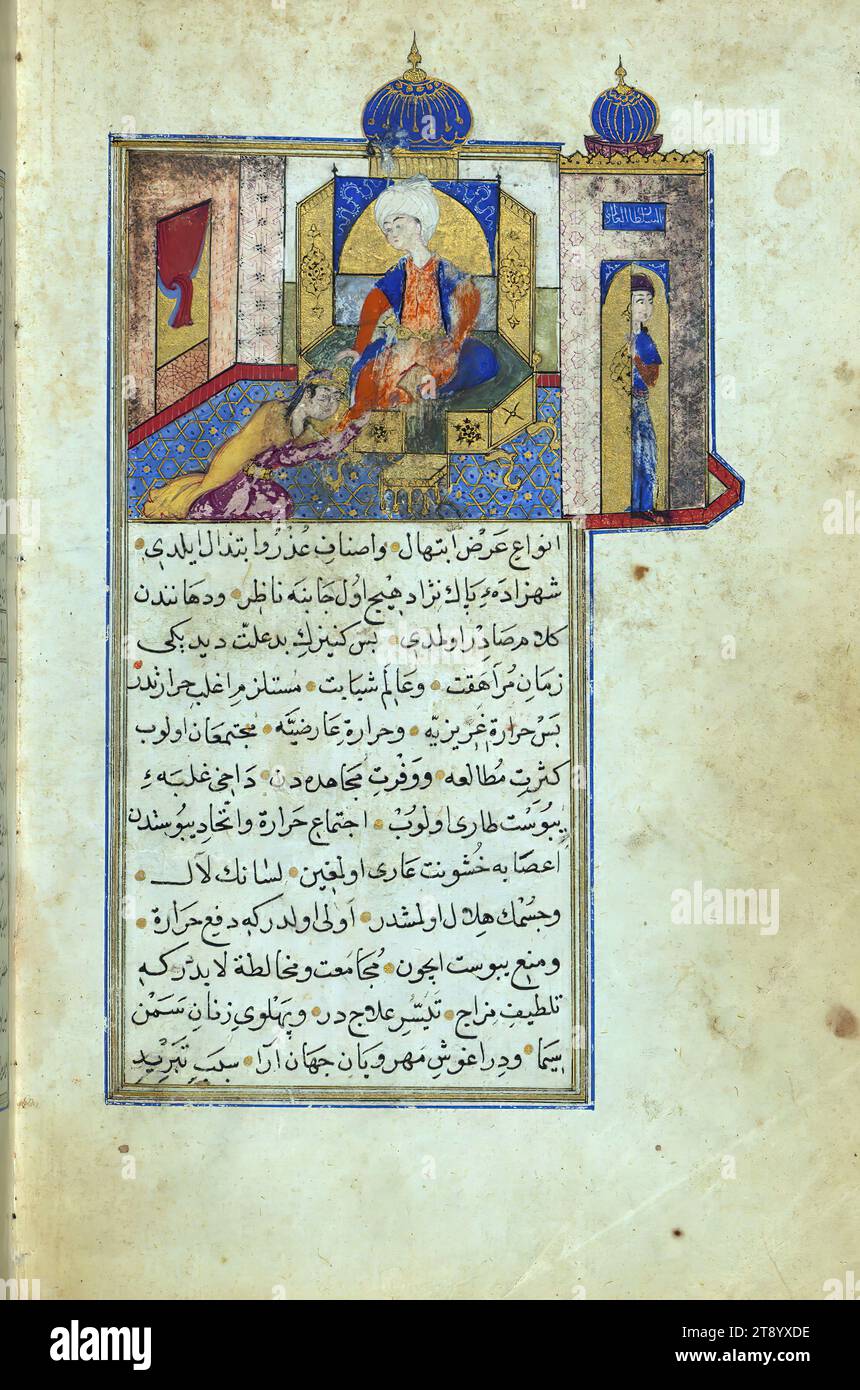 السلطان العادل
انواع عَرْضِ ابتهال واصنافِ عُذْرُ وابتذال ايلدى
شهزادهءِ پاك نژاد هيچ اول جانبه ناظر ودهانندن
كلام صادر اولمدى پس كنيزك بدعلت ديديكى
زمانِ مُراهَقت وعالمِ شبابت مستلزمِ اغلبِ حرارتدر
پس حرارةِ غريزيّه وحرارةِ عارضيّه مجتمعان اولوب
كثرتِ مُطالعه ووَفْرتِ مجاهده دن داخى غلبهءِ
يبُوست طارى اولوبْ اجتماعِ حرارة واتحادِ يبُوستدن
اعصابه خُشونت عارى اولمغين لسانك لال
وجسْمك هلال اولمشدر اَولى اولدركه دفعِ حرارة
ومنعِ يبوست ايچون مُجامعت ومخالطة لابدركه
تلطيفِ مزاج تيسّرِ علاجدر وپَهْلوىِ زنانِ سَمَنْ
سيما ودراغوشِ مَهرويانِ جهان آرا سببِ تبريدِ
alamy
Image ID: 2T8YXDE
www.alamy.com